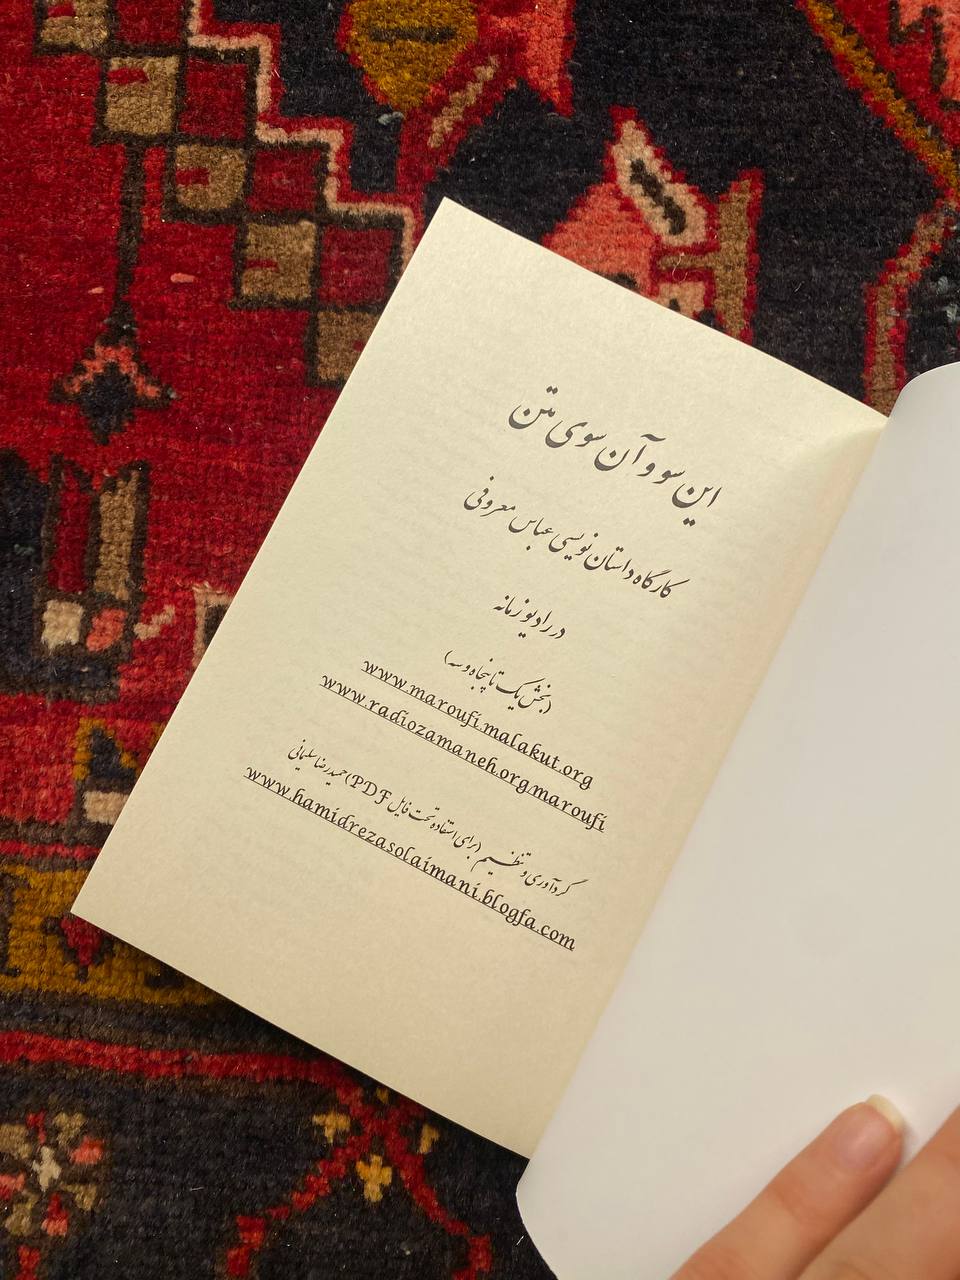 این سو و آن سوی متن
کارگاه داستان نویسی عباس معروفی
در رادیو زمانه
(بخش یک تا پنجاه و سه)
www.maroufi.malakut.org
www.radiozamaneh.org.maroufi
گردآوری و تنظیم (برای استفاده تحت فایل PDF) حمیدرضا سلیمانی
www.hamidrezasolaimani.blogfa.com